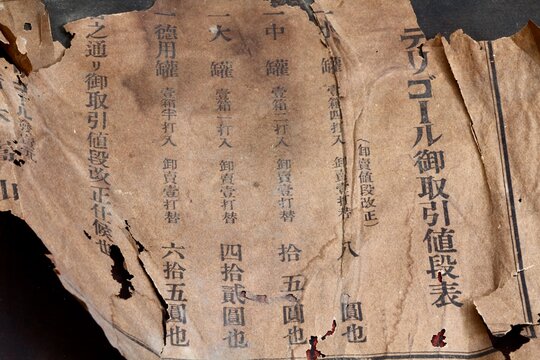 テリゴール御取引値段表
(卸賣値段改正)
一小罐 壹箱四打入 卸賣壹打替 八圓也
一中罐 壹箱二打入 卸賣壹打替 拾五圓也
一大罐 壹箱壹打入 卸賣壹打替 四拾貳圓也
一德用罐 壹箱半打入 卸賣壹打替 六拾五圓也
之通リ御取引値段改正仕候也
ゴール
山